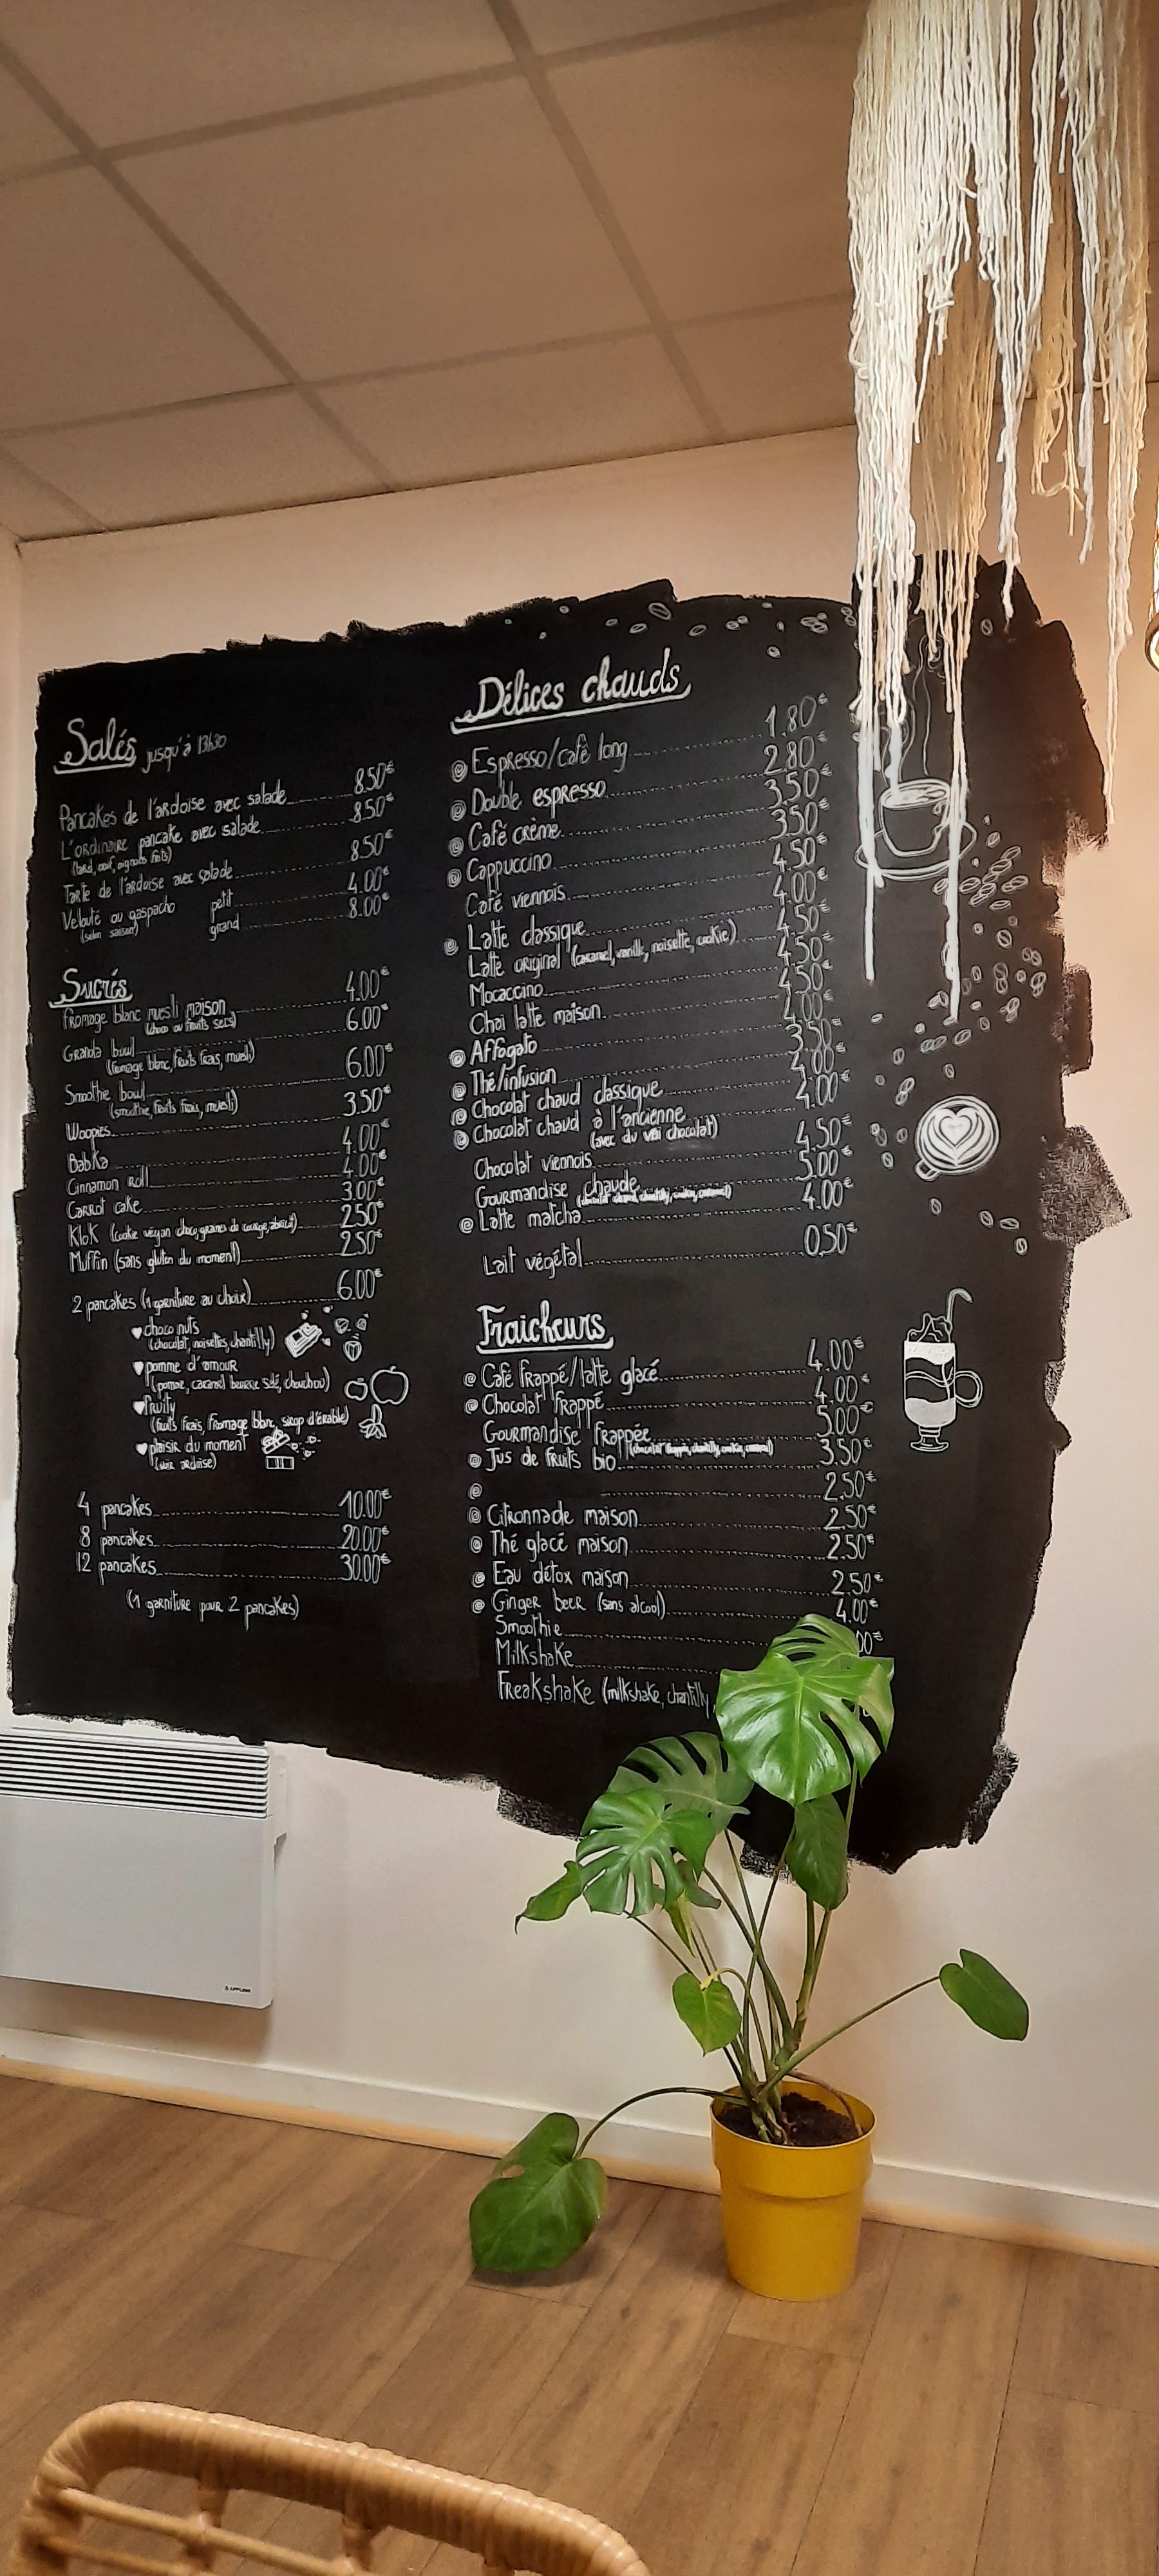 Salés jusqu'à 13h30
Pancakes de l'ardoise avec salade 8.50€
L'ordinaire pancake avec salade 8.50€
(lard, œuf, oignons frits)
Tarte de l'ardoise avec salade 8.50€
Velouté ou gaspacho petit 4.00€
(selon saison) grand 8.00€
Sucrés
Fromage blanc muesli maison 4.00€
(choco ou fruits secs)
Granola bowl 6.00€
(fromage blanc, fruits frais, muesli)
Smoothie bowl 6.00€
(smoothie, fruits frais, muesli)
Woopies 3.50€
Babka 4.00€
Cinnamon roll 4.00€
Carrot cake 3.00€
KloK (cookie végan choco, graines de courge, abricot) 2.50€
Muffin (sans gluten du moment) 2.50€
2 pancakes (1 garniture au choix) 6.00€
choco nuts
(chocolat, noisettes, chantilly)
pomme d'amour
(pomme, caramel beurre salé, chouchou)
fruity
(fruits frais, fromage blanc, sirop d'érable)
plaisir du moment
(voir ardoise)
4 pancakes 10.00€
8 pancakes 20.00€
12 pancakes 30.00€
(1 garniture pour 2 pancakes)
Délices chauds
@ Espresso/café long 1.80€
@ Double espresso 2.80€
@ Café crème 3.50€
@ Cappuccino 3.50€
Café viennois 4.50€
@ Latte classique 4.00€
Latte original (caramel, vanille, noisette, cookie) 4.50€
Mocaccino 4.50€
Chai latte maison 4.50€
@ Affogato 4.00€
@ Thé/infusion 3.50€
@ Chocolat chaud classique 4.00€
@ Chocolat chaud à l'ancienne 4.00€
(avec du vrai chocolat)
Chocolat viennois 4.50€
Gourmandise chaude 5.00€
(chocolat chaud, chantilly, cookie, caramel)
@ Latte matcha 4.00€
Lait végétal 0.50€
Fraicheurs
@ Café frappé/latte glacé 4.00€
@ Chocolat frappé 4.00€
Gourmandise frappée 5.00€
(chocolat frappé, chantilly, cookie, caramel)
@ Jus de fruits bio 3.50€
@ 2.50€
@ Citronnade maison 2.50€
@ Thé glacé maison 2.50€
@ Eau détox maison 2.50€
@ Ginger beer (sans alcool) 4.00€
Smoothie 00€
Milkshake
Freakshake (milkshake, chantilly,